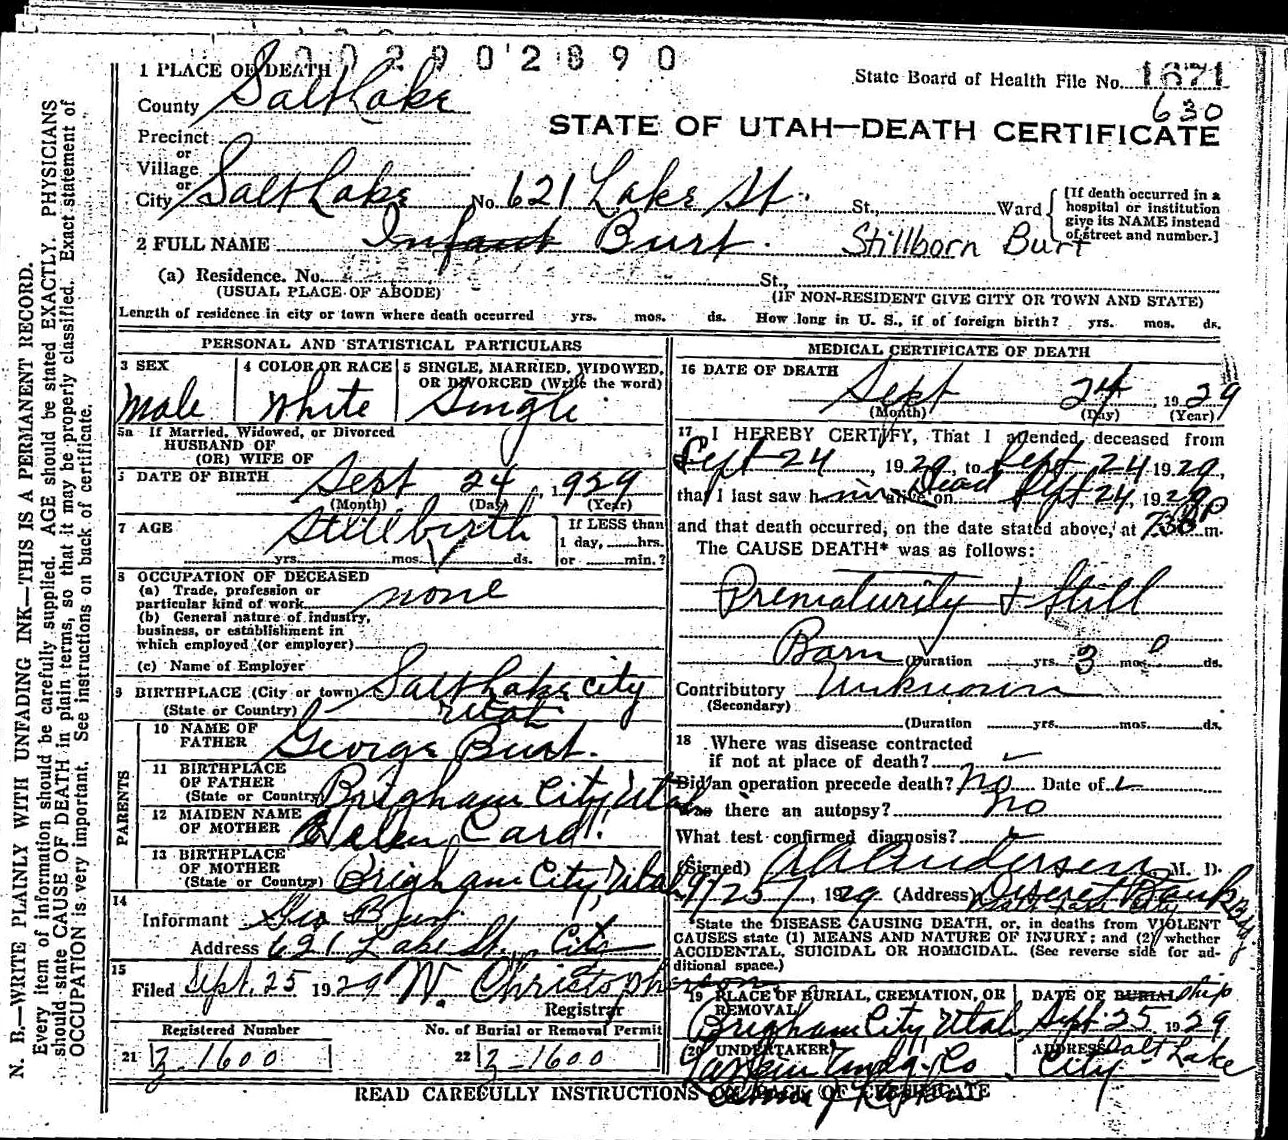 0 0 2 9 0 2 8 9 0
1 PLACE OF DEATH
State Board of Health File No. 1671
County Salt Lake
630
STATE OF UTAH—DEATH CERTIFICATE
Precinct
or
Village
or
City Salt Lake No. 621 Lake St. St., Ward
[If death occurred in a hospital or institution give its NAME instead of street and number.]
2 FULL NAME Infant Burt. Stillborn Burt
(a) Residence. No. St.,
(USUAL PLACE OF ABODE) (IF NON-RESIDENT GIVE CITY OR TOWN AND STATE)
Length of residence in city or town where death occurred yrs. mos. ds. How long in U. S., if of foreign birth? yrs. mos. ds.
PERSONAL AND STATISTICAL PARTICULARS
3 SEX
Male
4 COLOR OR RACE
White
5 SINGLE, MARRIED, WIDOWED,
OR DIVORCED (Write the word)
Single
5a If Married, Widowed, or Divorced
HUSBAND OF
(OR) WIFE OF
6 DATE OF BIRTH Sept 24, 1929
(Month) (Day) (Year)
7 AGE Stillbirth
yrs. mos. ds.
If LESS than
1 day, hrs.
or min.?
8 OCCUPATION OF DECEASED
(a) Trade, profession or
particular kind of work none
(b) General nature of industry,
business, or establishment in
which employed (or employer)
(c) Name of Employer
9 BIRTHPLACE (City or town) Salt Lake City
(State or Country) Utah
PARENTS
10 NAME OF
FATHER George Burt.
11 BIRTHPLACE
OF FATHER
(State or Country) Brigham City Utah
12 MAIDEN NAME
OF MOTHER Helen Card
13 BIRTHPLACE
OF MOTHER
(State or Country) Brigham City, Utah
14
Informant Geo Burt
Address 621 Lake St., City
15
Filed Sept. 25 1929 W. Christopherson
Registrar
Registered Number No. of Burial or Removal Permit
21 z-1600 22 z-1600
MEDICAL CERTIFICATE OF DEATH
16 DATE OF DEATH
Sept 24, 1929
(Month) (Day) (Year)
17 I HEREBY CERTIFY, That I attended deceased from
Sept 24, 1929, to Sept 24 1929,
that I last saw him alive on Dead Sept 24, 1929
and that death occurred, on the date stated above, at 7 30 P m.
The CAUSE DEATH* was as follows:
Prematurity & Still
Born (Duration yrs. mos. ds.
Contributory Unknown
(Secondary)
(Duration yrs. mos. ds.
18 Where was disease contracted
if not at place of death?
Did an operation precede death? No Date of
Was there an autopsy? No
What test confirmed diagnosis?
(Signed) A A Andersen M. D.
9/25, 1929 (Address) Deseret Bank Bldg
*State the DISEASE CAUSING DEATH, or, in deaths from VIOLENT
CAUSES state (1) MEANS AND NATURE OF INJURY; and (2) whether
ACCIDENTAL, SUICIDAL OR HOMICIDAL. (See reverse side for ad-
ditional space.)
19 PLACE OF BURIAL, CREMATION, OR
REMOVAL
Brigham City, Utah
DATE OF BURIAL Ship
Sept 25 1929
20 UNDERTAKER
Larkin Undg. Co
ADDRESS Salt Lake
City
READ CAREFULLY INSTRUCTIONS ON BACK OF CERTIFICATE
N. B.—WRITE PLAINLY WITH UNFADING INK—THIS IS A PERMANENT RECORD.
Every item of information should be carefully supplied. AGE should be stated EXACTLY. PHYSICIANS
should state CAUSE OF DEATH in plain terms, so that it may be properly classified. Exact statement of
OCCUPATION is very important. See instructions on back of certificate.